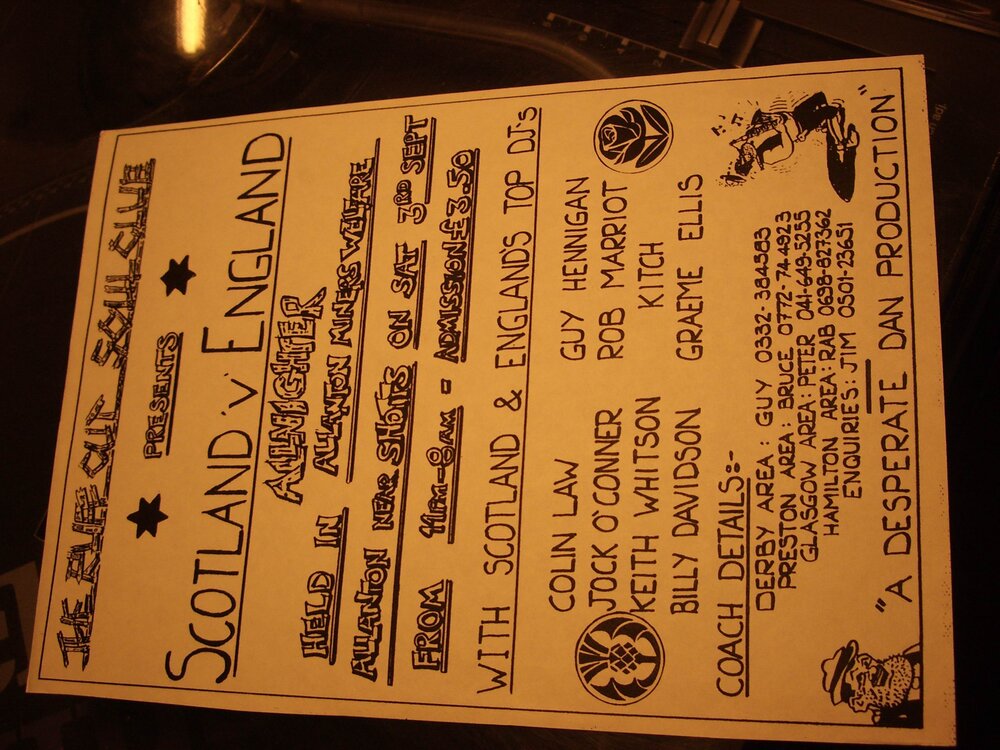 THE RARE CUT SOUL CLUB
PRESENTS
SCOTLAND 'V' ENGLAND
ALLNIGHTER
HELD IN ALLANTON MINERS WELFARE
ALLANTON NEAR SHOTTS ON SAT 3RD SEPT
FROM 11PM-8AM - ADMISSION £3.50
WITH SCOTLAND & ENGLAND'S TOP DJ's
COLIN LAW GUY HENNIGAN
JOCK O'CONNER ROB MARRIOT
KEITH WHITSON KITCH
BILLY DAVIDSON GRAEME ELLIS
COACH DETAILS:-
DERBY AREA: GUY 0332-384583
PRESTON AREA: BRUCE 0772-744923
GLASGOW AREA: PETER 041-649-5255
HAMILTON AREA: RAB 0698-827362
ENQUIRIES: JIM 0501-23651
"A DESPERATE DAN PRODUCTION"